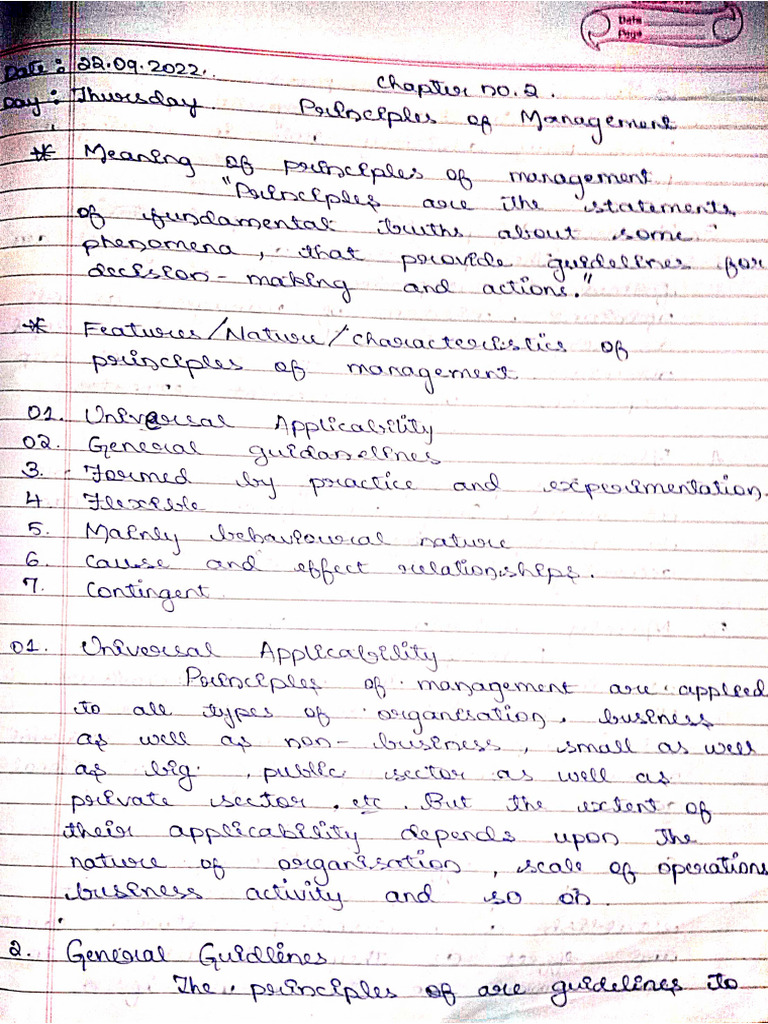 Date
Page
Date: 22.09.2022.
Chapter no.2.
Day: Thursday. Principles of Management
* Meaning of principles of management
"Principles are the statements
of fundamental truths about some
phenomena, that provide guidelines for
decision-making and actions."
* Features/Nature/Characteristics of
principles of management
01. Universal Applicability
02. General guidanelines
3. Formed by practice and experimentation.
4. Flexible
5. Mainly behavioural nature
6. Cause and effect relationships.
7. Contingent
01. Universal Applicability
Principles of management are applied
to all types of organisation, business
as well as non-business, small as well
as big, public sector as well as
private sector, etc. But the extent of
their applicability depends upon the
nature of organisation, scale of operations
business activity and so on.
2. General Guidlines
The principles of are guidelines to